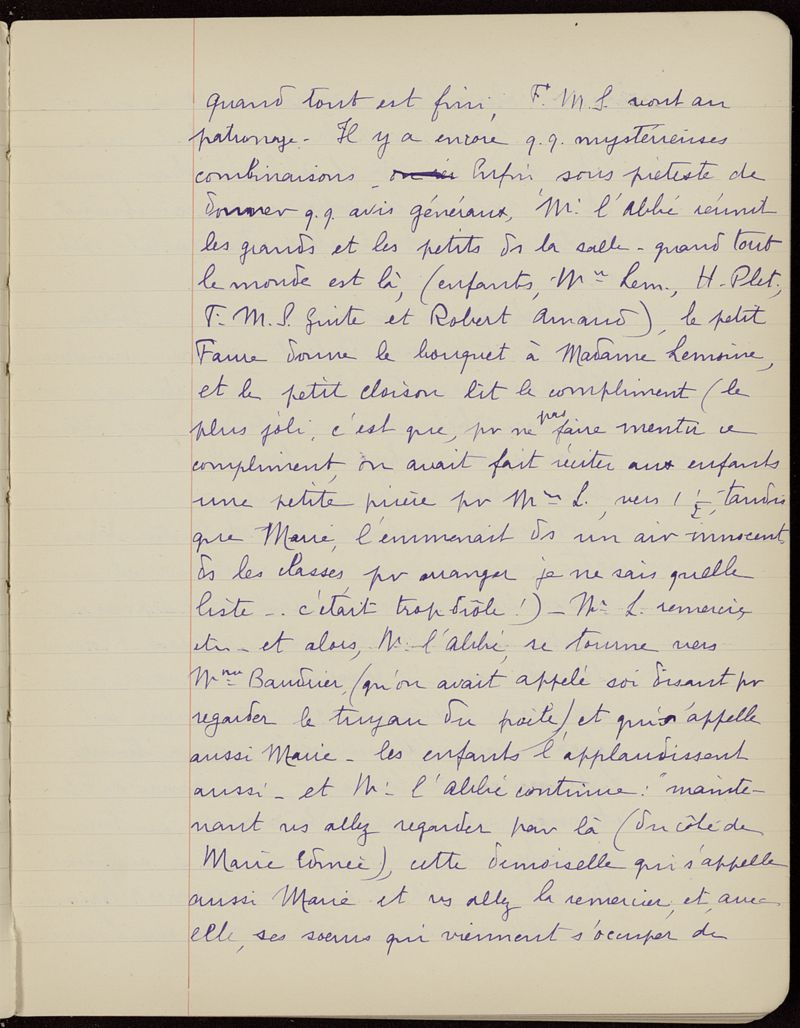 quand tout est fini, F. M. S. vont au
patronage - Il y a encore q.q. mystérieuses
combinaisons - Enfin sous prétexte de
donner q.q. avis généraux, Mr. l'abbé réunit
les grands et les petits ds la salle - quand tout
le monde est là, (enfants, Mme Lem., H. Plet.,
F. M. S. Ginte et Robert Amand), le petit
Faure donne le bouquet à Madame Lemoine,
et le petit Cloison lit le compliment (le
plus joli, c'est que, pr ne pas faire mentir ce
compliment, on avait fait réciter aux enfants
une petite prière pr Mme L., vers 1 1/2, tandis
que Marie, l'emmenait ds un air innocent
ds les classes, pr arranger je ne sais quelle
liste -. c'était trop drôle!) - Me L. remercie,
etc - et alors, Mr. l'abbé, se tourne vers
Mme Baudrier, (qu'on avait appelé soi disant pr
regarder le tuyau du poële) et qui s'appelle
aussi Marie - les enfants l'applaudissent
aussi - et Mr. l'abbé continue: "mainte-
nant vs allez regarder par là (du côté de
Marie), cette demoiselle qui s'appelle
aussi Marie et vs allez la remercier, et, avec
elle, ses soeurs qui viennent s'occuper de